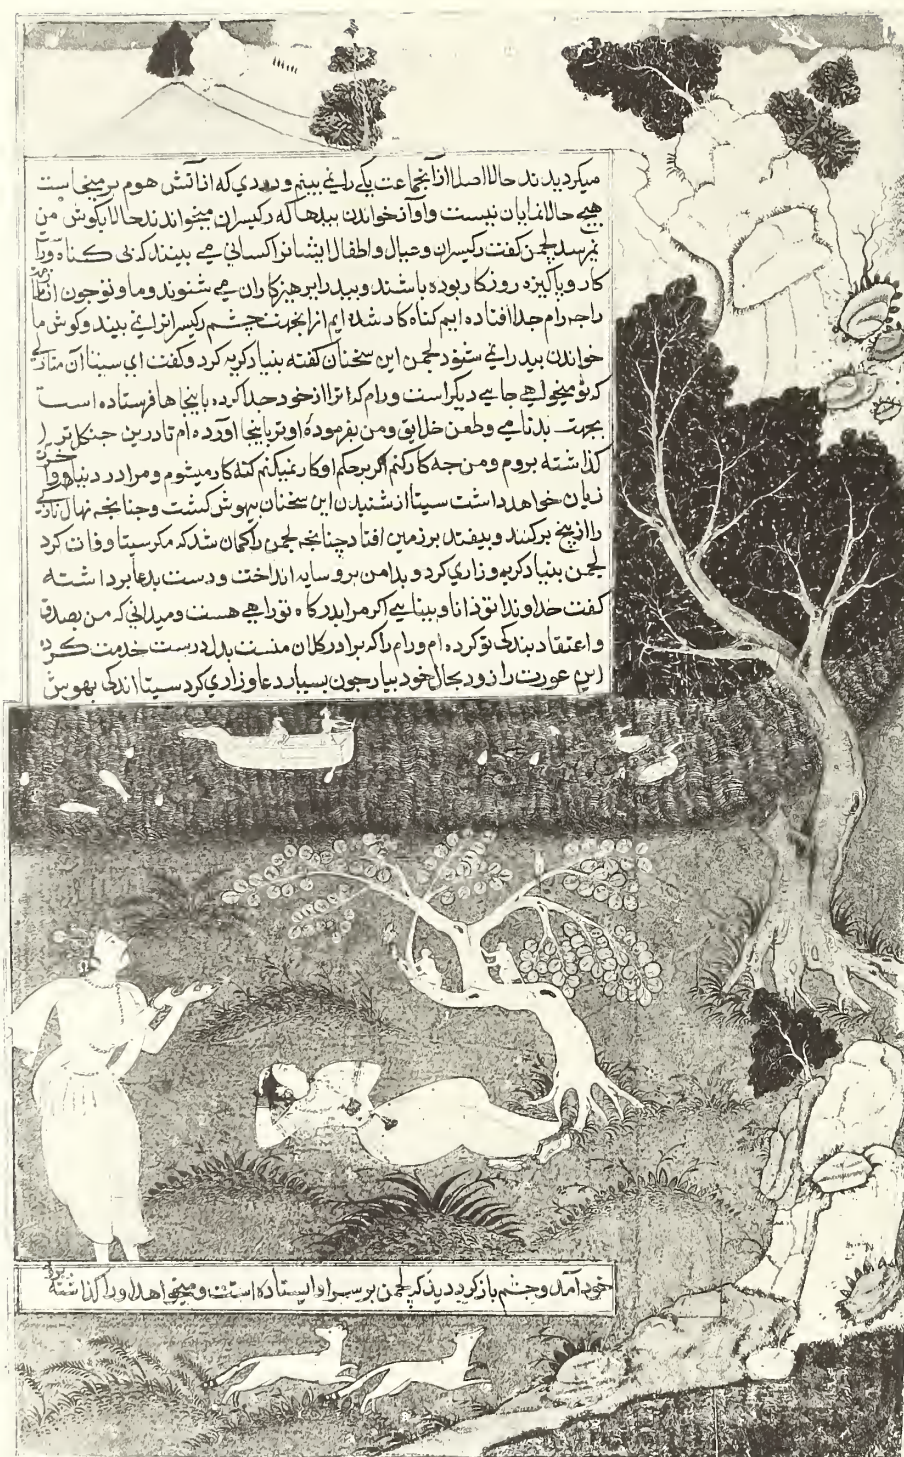 میکردیدند حالا اصلا ازانجماعت یکی رانمی بینم و دودی که از آتش هوم بر میخاست
هیچ حالا نمایان نیست و آواز خواندن بیدها که رکیسران میخواندند حالا بکوش من
نمیرسد لچمن کفت رکیسران و عیال و اطفال ایشانرا کسانی می بینند که بی کناه و
کار و پاکیزه روزکار بوده باشند و بید را پرهیزکاران می شنوند و ما و تو چون از
راجه رام جدا افتاده ایم کناه کار شده ایم ازانجهت چشم رکیسرانرا نمی بیند و کوش ما
خواندن بید رانمی شنود لچمن این سخنان کفته بنیاد کریه کرد و کفت ای سیتا آن
که تو میخواهی جایی دیکر است و رام که ترا از خود جدا کرده باینجاها فرستاده است
بجهت بدنامی و طعن خلایق و من بفرمودهٔ او ترا باینجا آورده ام تا درین جنکل ترا
کذاشته بروم و من چه کار کنم اکر بر حکم او کار نمیکنم کنه کار میشوم و مرا در دنیا و آخرت
زیان خواهد داشت سیتا از شنیدن این سخنان بیهوش کشت و چنانچه نهال تازکی
را از بیخ برکنند و بیفتد بر زمین افتاد چنانچه لچمن را کمان شد که مکر سیتا وفات کرد
لچمن بنیاد کریه و زاری کرد و بدامن برو سایه انداخت و دست بدعا برداشته
کفت خداوندا تو دانا و بینایی اکر مرا بدرکاه تو راهی هست و میدانی که من بصدق
و اعتقاد بندکی تو کرده ام و رام را که برادر کلان منست بدل درست خدمت کرده
این عورت را زود بحال خود بیار چون بسیار دعا و زاری کرد سیتا اندکی بهوش
خود آمد و چشم باز کرد دید که لچمن بر سر او ایستاده است و میخواهد او را کذاشته برود